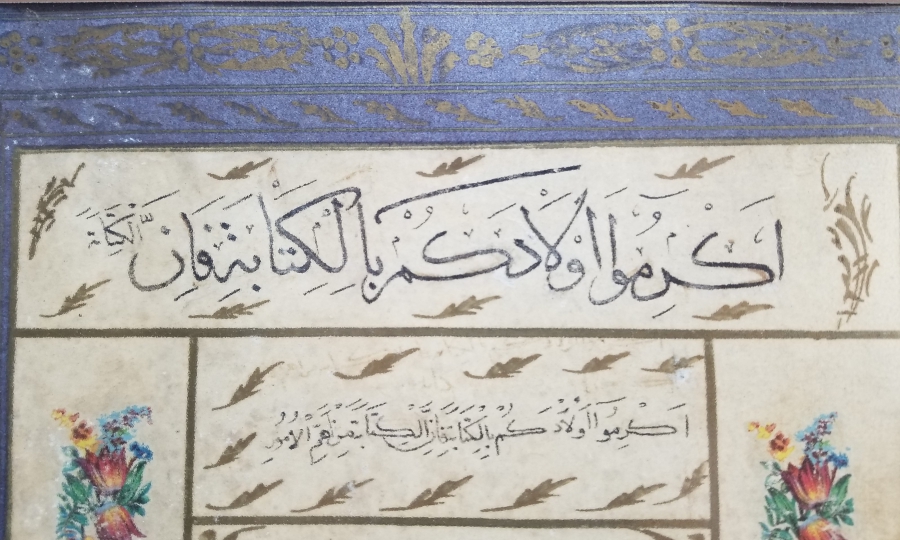 اَكْرِمُوا اَوْلَادَكُمْ بِالْكِتَابَةِ فَاِنَّ الْكِتَابَةَ
اَكْرِمُوا اَوْلَادَكُمْ بِالْكِتَابَةِ فَاِنَّ الْكِتَابَةَ مِنْ اَهَمِّ الْاُمُورِ